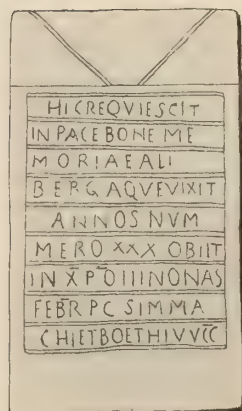 HICREQVIESCIT
INPACEBONEME
MORIAEALI
BERGAQVEVIXIT
ANNOS NVM
MERO XXX OBIIT
IN X̄P̄O IIINONAS
FEB̄R PC SIMMA
CHIETBOETHIVVC̄C̄